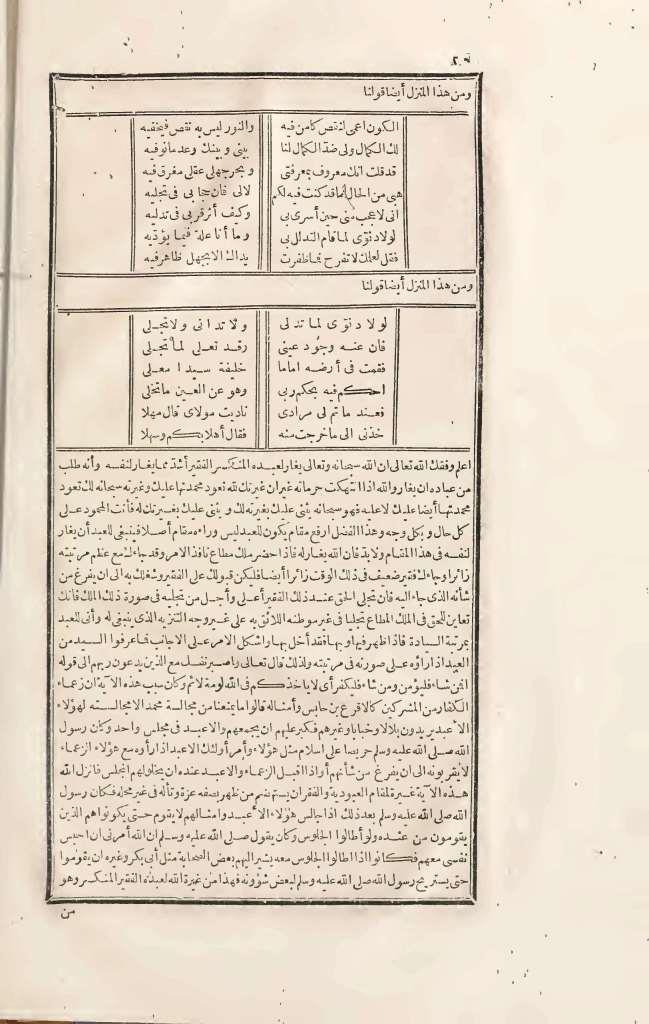 ٢٠٤
ومن هذا المنزل أيضا قولنا
الكون اعمى لنقص كامن فيه والنور ليس به نقص فيخفيه
لك الكمال ولى ضد الكمال لنا بينى وبينك وعد ما نوفيه
قد قلت انك معروف بمعرفتى وبحر جهلى عقلى مغرق فيه
هبى من الحال انما قد كنت فيه لكم لالى فان حجابى فى تجليه
انى لاعجب منى حين أسرى بى وكيف أثر قربى فى تدليه
لولا دنوّى لما قام التدلل بى وما أنا علة فيما يؤديه
فقل لعلك لا تفرح بما ظفرت يداك الا بجهل ظاهر فيه
ومن هذا المنزل أيضا قولنا
لولا دنوّى لما تدلى ولا تدانى ولا تجلى
فان عنه وجود عينى وقد تعلى لما تجلى
فقمت فى أرضه اماما خليفة سيدا معلى
احكم فيه بحكم ربى وهو عن العين ما تخلى
فعند ما تم لى مرادى ناديت مولاى قال مهلا
خذنى الى ما خرجت منه فقال أهلا بكم وسهلا
اعلم وفقك الله تعالى ان الله سبحانه وتعالى يغار لعبده المنكسر الفقير أشد مما يغار لنفسه وأنه طلب
من عباده ان يغاروا لله اذا انتهكت حرماته غير ان غيرتك لله تعود محمدتها عليك وغيرته سبحانه لك تعود
محمدتها أيضا عليك لا عليه فهو سبحانه يثنى عليك بغيرته لك ويثنى عليك بغيرتك له فأنت المحمود على
كل حال وبكل وجه وهذا الفضل ارفع مقام يكون للعبد ليس وراءه مقام أصلا فينبغى للعبد أن يغار
لنفسه فى هذا المقام ولا بد فان الله يغار له فاذا حضر ملك مطاع نافذ الامر وقد جاءك مع عظم مرتبته
زائرا وجاءك فقير ضعيف فى ذلك الوقت زائرا أيضا فليكن قبولك على الفقير وشغلك به الى ان يفرغ من
شأنه الذى جاء اليه فان تجلى الحق عند ذلك الفقير أعلى وأجل من تجليه فى صورة ذلك الملك فانك
تعاين للحق فى الملك المطاع تجليا فى غير موطنه اللائق به على غير وجه التنزيه الذى ينبغى له وأنى للعبد
بمرتبة السيادة فاذا ظهر فيها وبها فقد أخل بها واشكل الامر على الاجانب فما عرفوا السيد من
العبد اذا رأوه على صورته فى مرتبته ولذلك قال تعالى واصبر نفسك مع الذين يدعون ربهم الى قوله
فمن شاء فليؤمن ومن شاء فليكفر أى لا يأخذكم فى الله لومة لائم وكان سبب هذه الآية ان زعماء
الكفار من المشركين كالاقرع بن حابس وأمثاله قالوا ما يمنعنا من مجالسة محمد الا مجالسته لهؤلاء
الاعبد يريدون بلالا وخبابا وغيرهم فكبر عليهم ان يجمعهم والاعبد فى مجلس واحد وكان رسول
الله صلى الله عليه وسلم حريصا على اسلام مثل هؤلاء وأمر أولئك الاعبد اذا رأوه مع هؤلاء الزعماء
لا يقربونه الى ان يفرغ من شأنهم أو اذا اقبل الزعماء والاعبد عنده ان يخلوا لهم المجلس فانزل الله
هذه الآية غيرة لمقام العبودية والفقر ان يستهضم من ظهر بصفة عزة وتأله فى غير محله فكان رسول
الله صلى الله عليه وسلم بعد ذلك اذا جالس هؤلاء الاعبد وامثالهم لا يقوم حتى يكونوا هم الذين
يقومون من عنده ولو أطالوا الجلوس وكان يقول صلى الله عليه وسلم ان الله أمرنى ان احبس
نفسى معهم فكانوا اذا اطالوا الجلوس معه يشير اليهم بعض الصحابة مثل أبى بكر وغيره ان يقوموا
حتى يستريح رسول الله صلى الله عليه وسلم لبعض شؤونه فهذا من غيرة الله لعبده الفقير المنكسر وهو
من